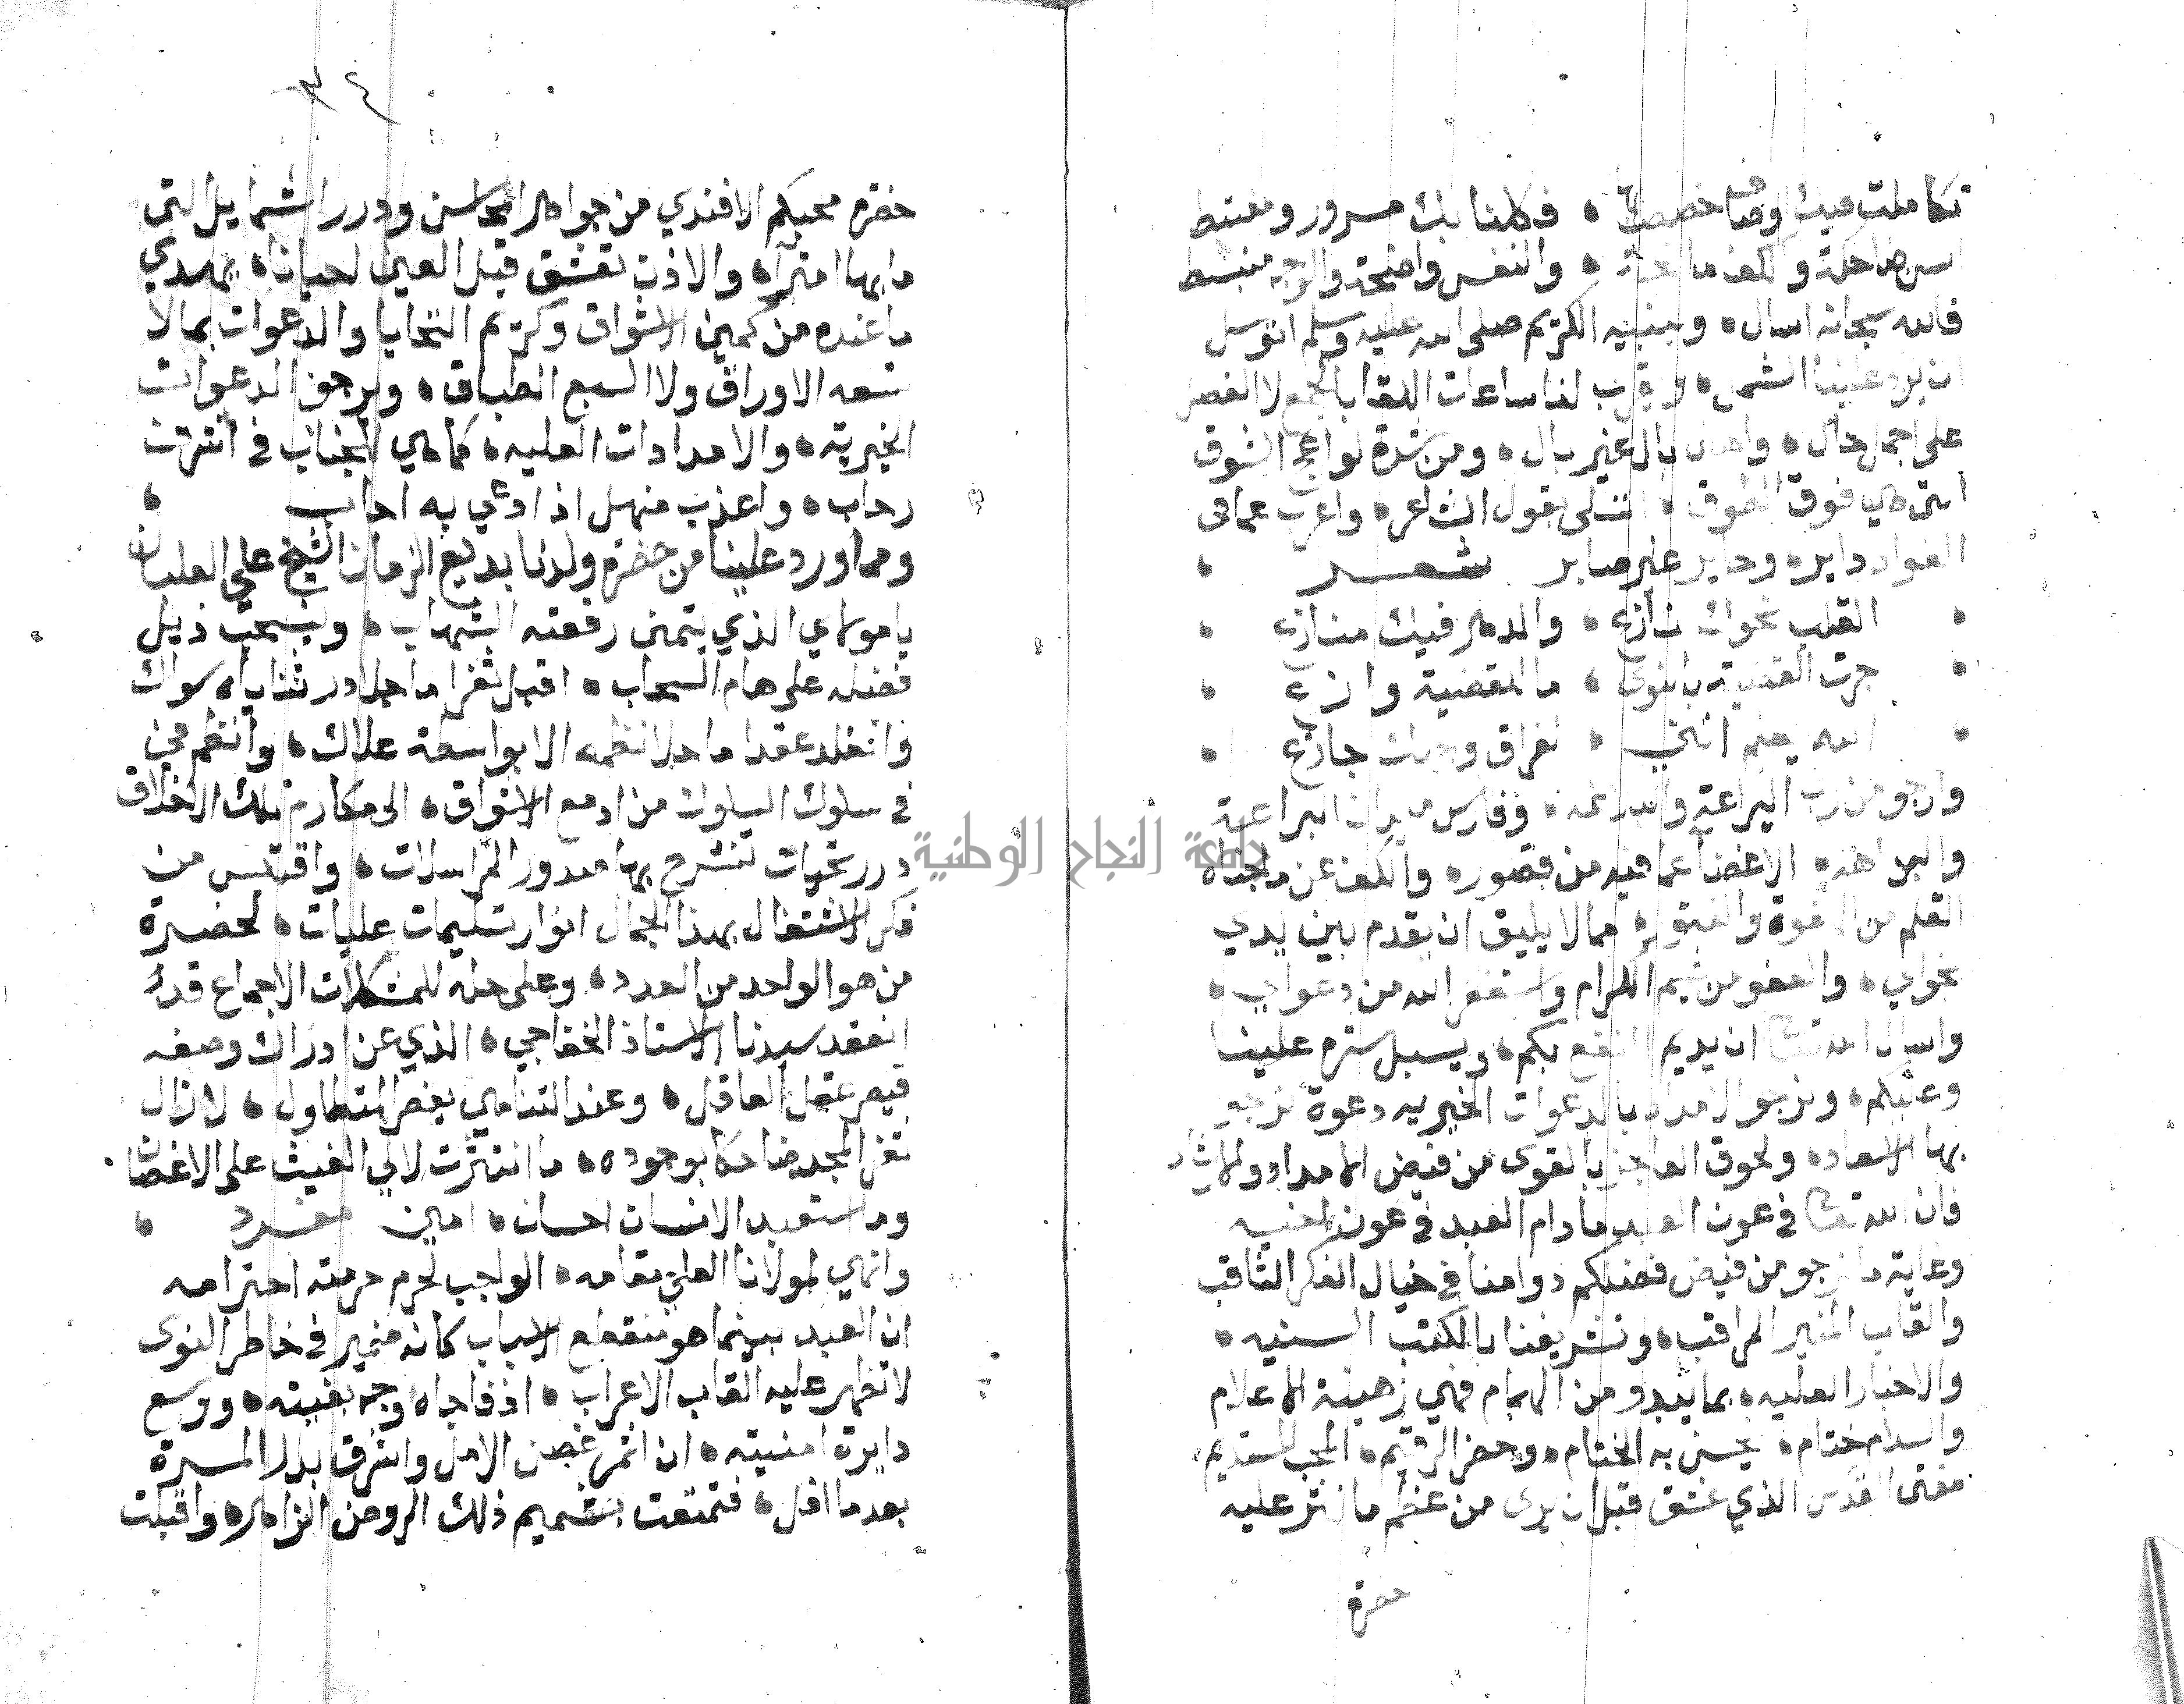 تكاملت فيك اوصاف خصصت بها ٥ فكلنا بك مسرور ومغتبط
السن ضاحكة والكف مانحة ٥ والنفس واضحة والوجه منبسط
فالله سبحانه اسال ٥ وبنبيه الكريم صلى الله عليه وسلم اتوسل
ان يرد علينا الشمس ٥ ويقرب لنا ساعات اللقا بالجمع لا الفصل
على اجمل حال ٥ واهنى بال غير بال ٥ ومن شدة لواعج الشوق
التي هي فوق الطوق ٥ اتسلى بقول الشاعر ٥ واعرب عما في
الفواد داير ٥ وحاير غير صابر شعر ٥
٥ القلب نحوك نازع ٥ والدهر فيك منازع ٥
٥ جرت القضية بالنوى ٥ ما للقضية وازع ٥
٥ الله يعلم انني ٥ لفراق وجهك جازع ٥
وارجو من رب اليراعة والبراعه ٥ وفارس ميدان البراعة
والبداهه ٥ الاغضا عما فيه من قصور ٥ والكف عن ماجناه
القلم من الهفوة والفتور ٥ مما لا يليق ان يقدم بين يدي
نجواي ٥ والعفو من شيم الكرام واستغفر الله من دعواي ٥
واسال الله تعالى ان يديم النفع بكم ٥ ويسبل ستره علينا
وعليكم ٥ ونرجو الامداد بالدعوات الخيريه دعوة نرجو
بها الاسعاد ٥ ولحوق العاجز بالقوى من فيض الامداد والارشاد
فان الله تعالى في عون العبد مادام العبد في عون اخيه
وغاية ما نرجو من فيض فضلكم دوامنا في خيال الفكر الثاقب
والقلب المنير المراقب ٥ وتشريفنا بالكتب السنيه ٥
والاخبار العليه ٥ بما يبدو من المهام فهي رهينة الاعلام
والسلام ختام ٥ يحسن به الختام ٥ وحضر الرقيم ٥ المحب المستديم
مفتى القدس الذي عشق قبل ان يرى من عظم ما نثر عليه
حضرة
٣٤
حضرة محبكم الافندي من جواهر المحاسن ودرر الشمايل التي
ما بها امترآه ٥ والاذن تعشق قبل العين احيانا ٥ يهدي
ما عنده من كمين الاشواق وكريم التحايا والدعوات بما لا
تسعه الاوراق ولا السبع الطباق ٥ ويرجو الدعوات
الخيرية ٥ والامدادات العليه ٥ كما هي الجناب في اشرف
رحاب ٥ واعذب منهل اذا دعي به اجاب ٥
ومما ورد علينا من حضرة ولدنا بديع الزمان الشيخ علي العلبان
يا مولاي الذي يتمنى رفعته الشهاب ٥ ويسحب ذيل
فضله على هام السحاب ٥ اقبل ثغرا ما جلا در ثناياه سواك
واتقلد عقدا ما حلا نظمه الا بواسطة علاك ٥ وانظم في
في سلوك السلوك من ادمع الاشواق ٥ الى مكارم تلك الاخلاق
درر تحيات تنشرح بها صدور المراسلات ٥ واقتبس من
فكر الاشتغال بهذا الجمال انوار تسليمات عليات ٥ لحضرة
من هو الواحد من العدد ٥ وعلى حله للمشكلات الاجماع قد
انعقد سيدنا الاستاذ الخفاجي ٥ الذي عن ادراك وصفه
قيصر عقل العاقل ٥ وعند التناهي يقصر المتطاول ٥ لا زال
ثغر المجد ضاحكا بوجوده ٥ ما انتثرت لالي الغيث على الاغصان
وما استعبد الانسان احسان ٥ امين مفرد ٥
وانهي لمولانا العلي مقامه ٥ الواجب لحرم حرمته احترامه
ان العبد بينما هو منقطع الاسباب كانه ضمير في خاطر النوى
لا تظهر عليه القاب الاعراب ٥ اذ فاجاه وجه بغيته ٥ ووسع
دايرة امنيته ٥ ان اثمر غصن الامل واشرق بدر المسرة
بعد ما افل ٥ فتمتعت بشميم ذلك الروض الزاهر ٥ واقبلت
جامعة النجاح الوطنية